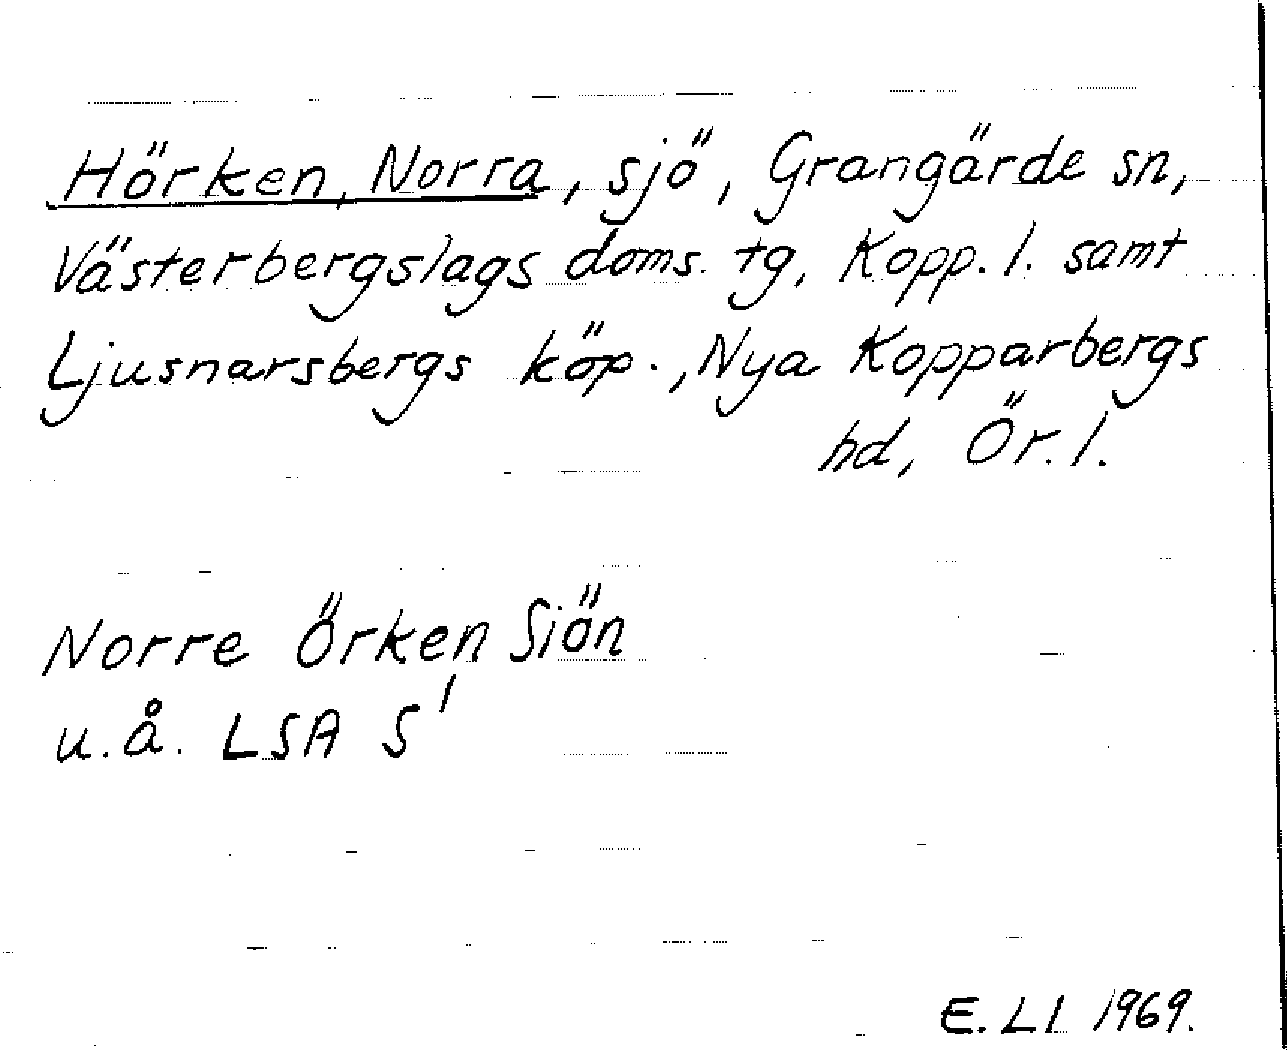 Hörken, Norra, sjö, Grangärde sn,
Västerbergslags doms. tg, Kopp. l. samt
Ljusnarsbergs köp., Nya Kopparbergs
hd, Ör. l.
Norre Örken Siön
u.å. LSA S'
E. Ll 1969.